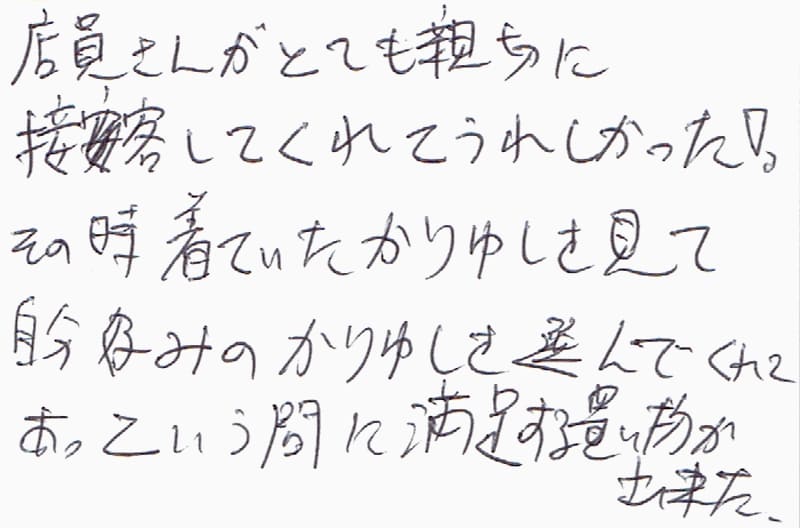 店員さんがとても親切に
接客してくれてうれしかった!。
その時着ていたかりゆしを見て
自分好みのかりゆしを選んでくれて
あっという間に満足する買い物が
出来た、